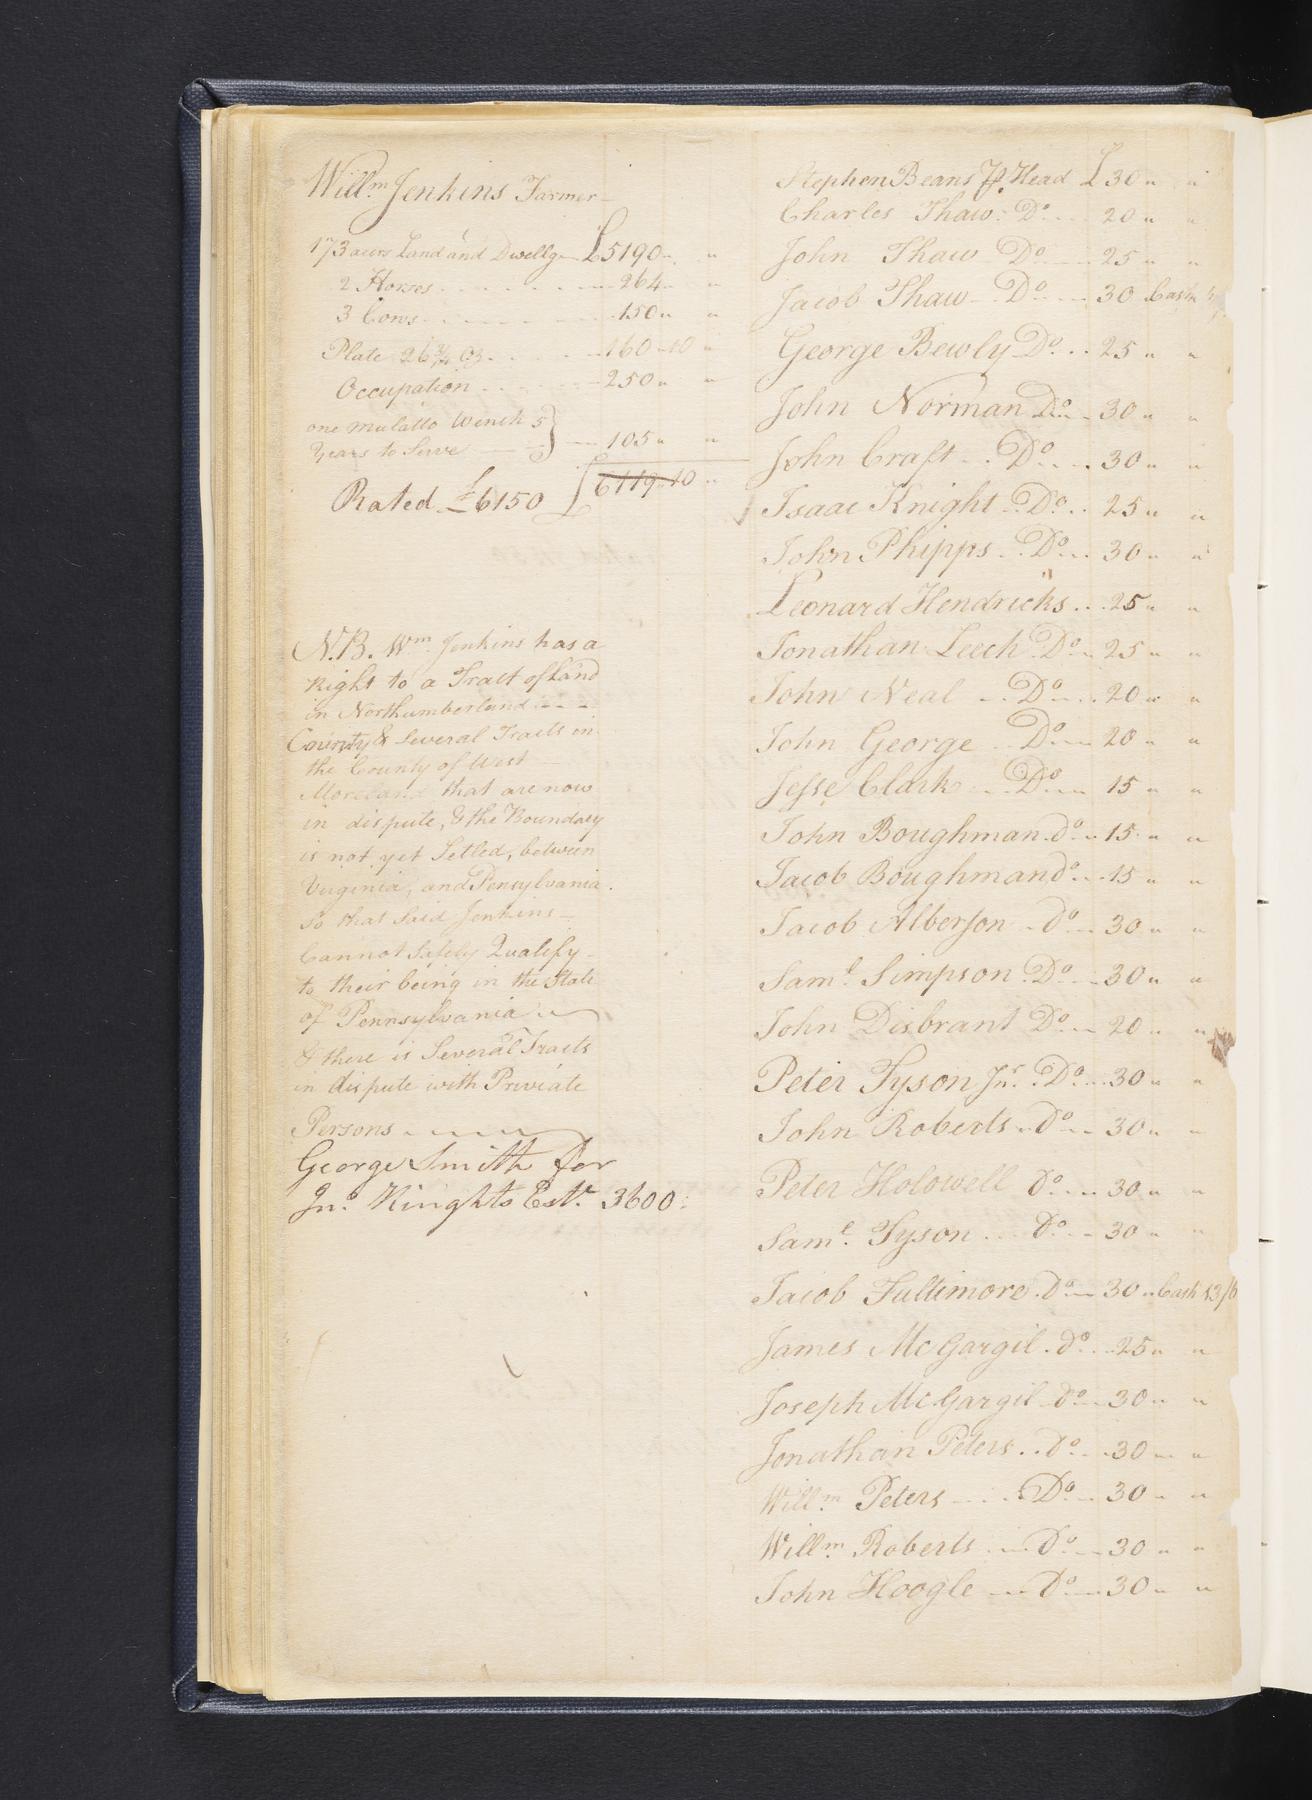 Willm. Jenkins Farmer
173 acers Land and Dwellg £5190 " "
2 Horses 264 " "
3 Cows 150 " "
Plate 26¾ Oz 160 10 "
Occupation 250 " "
one mulatto Wench 5
Years to Serve } 105 " "
Rated £6150 £6119 10 "
N.B. Wm. Jenkins has a
Right to a Tract of Land
in Northumberland
County & Several Tracts in
the County of West
Moreland that are now
in dispute, & the Boundary
is not yet Setled, between
Virginia, and Pensylvania.
So that Said Jenkins
Cannot Safely Qualify
to their being in the State
of Pennsylvania
& there is Several Tracts
in dispute with Priviate
Persons
George Smith for
Jno. Kinghts Este. 3600:
Stephen Beans Head £30 " "
Charles Thaw: Do 20 " "
John Thaw Do 25 " "
Jacob Thaw Do 30 Cash
George Bewly Do 25 " "
John Norman Do 30 " "
John Craft Do 30 " "
Isaac Knight Do 25 " "
John Phipps Do 30 " "
Leonard Hendricks 25 " "
Jonathan Leech Do 25 " "
John Neal Do 20 " "
John George Do 20 " "
Jesse Clark Do 15 " "
John Boughman do 15 " "
Jacob Boughman do 15 " "
Jacob Alberson do 30 " "
Saml. Simpson Do 30 " "
John Disbrant Do 20 " "
Peter Tyson Jnr. Do 30 " "
John Roberts do 30 " "
Peter Holowell do 30 " "
Saml. Tyson do 30 " "
Jacob Fultimore Do 30 " Cash 13/6
James McGargil do 25 " "
Joseph McGargil do 30 " "
Jonathan Peters do 30 " "
Willm. Peters Do 30 " "
Willm. Roberts Do 30 " "
John Hoogle Do 30 " "